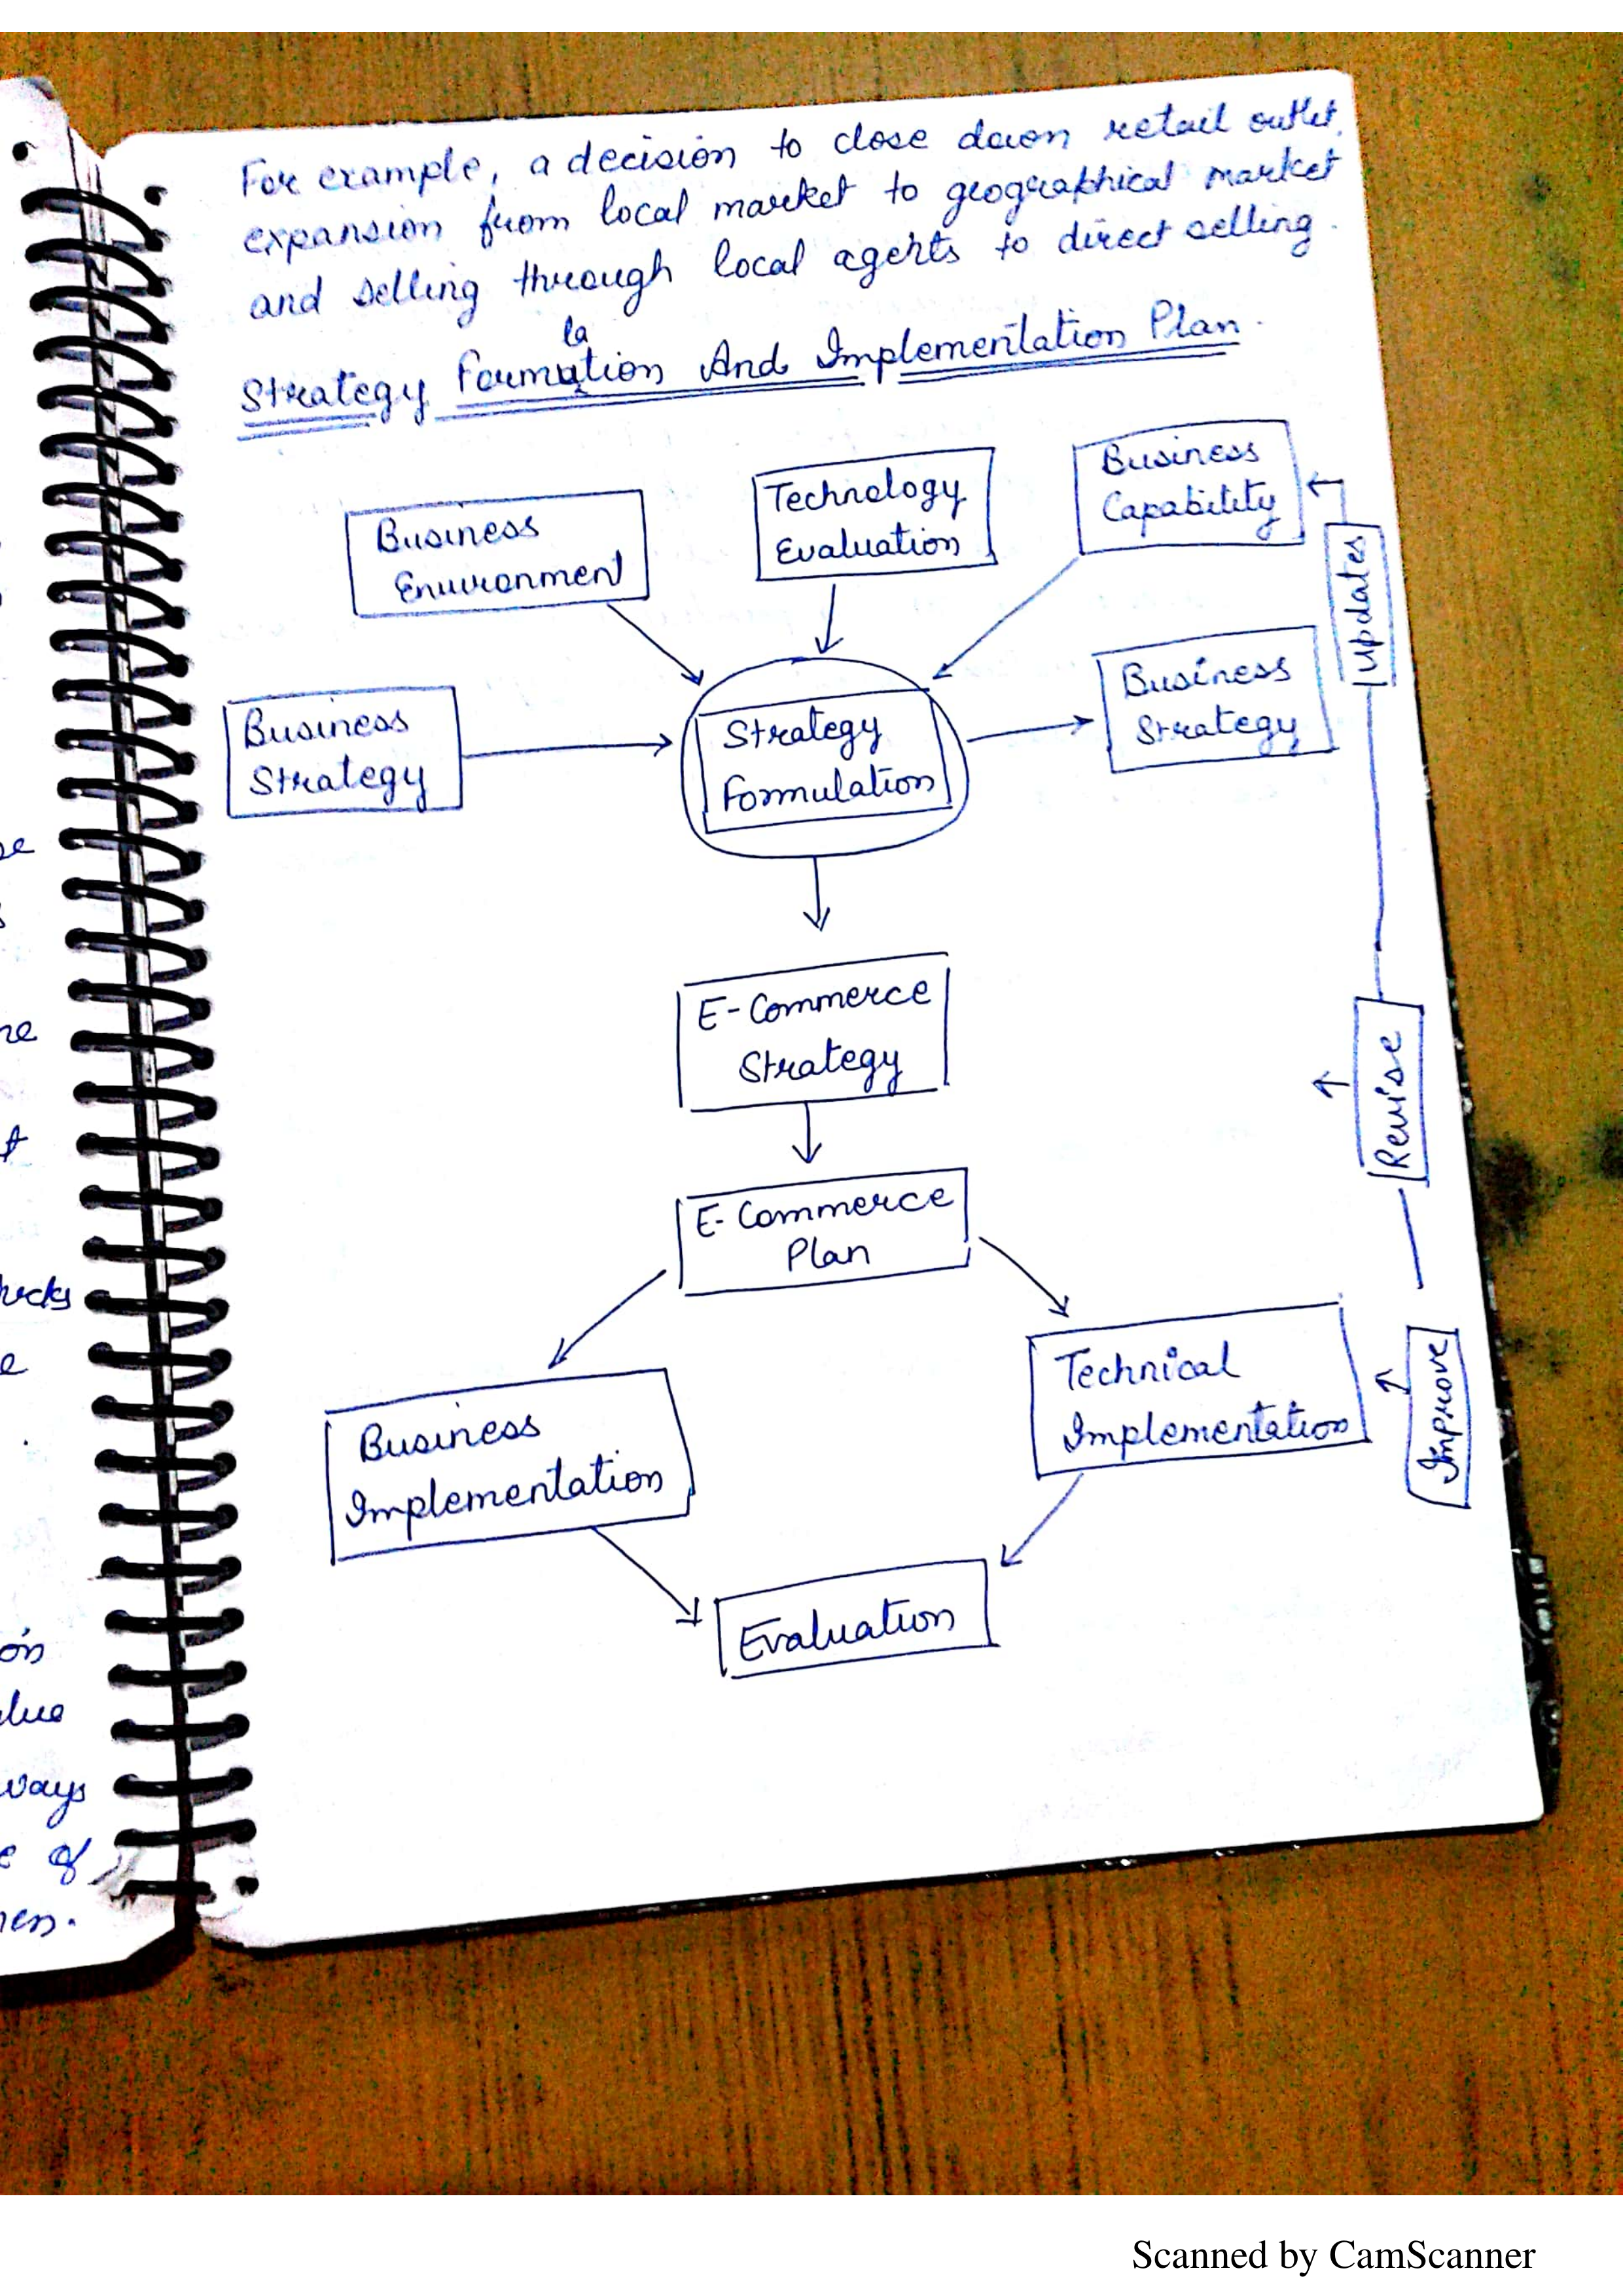 For example, a decision to close down retail outlet,
expansion from local market to geographical market
and selling through local agents to direct selling.
la
Strategy Formution And Implementation Plan.
Business
Environment
Technology
Evaluation
Business
Capability
Updates
Business
Strategy
Strategy
Formulation
Business
Strategy
E-Commerce
Strategy
Revise
E-Commerce
Plan
Business
Implementation
Technical
Implementation
Improve
Evaluation
ways
of
Scanned by CamScanner